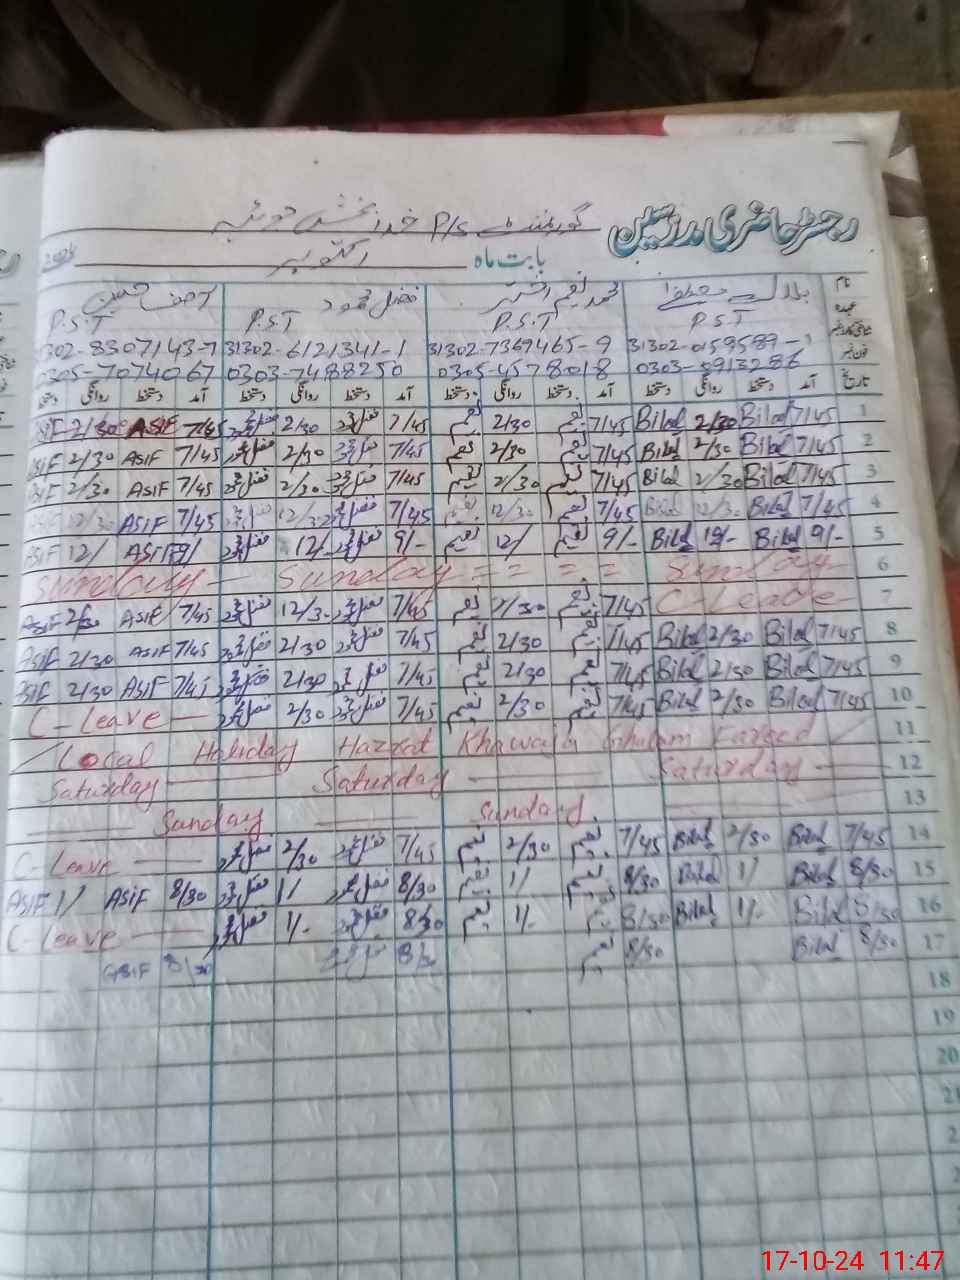 رجسٹر حاضری مدرسین
گورنمنٹ P/S خدا بخش
بابت ماہ اکتوبر 2024
نام بلال محمد نعیم اختر فضل محمود آصف حسین
عہدہ P.S.T P.S.T P.S.T P.S.T
31302-0159589- 31302-7369465-9 31302-6121341-1 302-8307143-7
فون نمبر 0303-8913286 0305-4578018 0303-7488250 0305-7074067
تاریخ آمد دستخط روانگی دستخط آمد دستخط روانگی دستخط آمد دستخط روانگی دستخط آمد دستخط روانگی دستخط
1 7/45 Bilal 2/30 Bilal 7/45 نعیم 2/30 نعیم 7/45 فضل 2/30 فضل 7/45 ASIF 2/30 SIF
2 7/45 Bilal 2/30 Bilal 7/45 نعیم 2/30 نعیم 7/45 فضل 2/30 فضل 7/45 ASIF 2/30 SIF
3 7/45 Bilal 2/30 Bilal 7/45 نعیم 2/30 نعیم 7/45 فضل 2/30 فضل 7/45 ASIF 2/30 SIF
4 7/45 Bilal 12/30 Bilal 7/45 نعیم 12/30 نعیم 7/45 فضل 12/30 فضل 7/45 ASIF 12/30
5 9/- Bilal 12/- Bilal 9/- نعیم 12/ نعیم 9/- فضل 12/- فضل 9/ ASIF 12/ ASIF
6 Sunday — Sunday = = = = Sunday
7 C-Leave 7/45 نعیم 2/30 نعیم 7/45 فضل 12/30 فضل 7/45 ASIF 2/30 ASIF
8 7/45 Bilal 2/30 Bilal 7/45 نعیم 2/30 نعیم 7/45 فضل 2/30 فضل 7/45 ASIF 2/30 ASIF
9 7/45 Bilal 2/30 Bilal 7/45 نعیم 2/30 نعیم 7/45 فضل 2/30 فضل 7/45 ASIF 2/30 ASIF
10 7/45 Bilal 2/30 Bilal 7/45 نعیم 2/30 نعیم 7/45 فضل 2/30 فضل C-Leave —
11 Local Holiday Hazrat Khawaja Ghulam Fareed
12 Saturday — Saturday — Saturday —
13 — Sunday — Sunday
14 7/45 Bilal 2/30 Bilal 7/45 نعیم 2/30 نعیم 7/45 فضل 2/30 فضل C-Leave —
15 8/30 Bilal 1/ Bilal 8/30 نعیم 1/ نعیم 8/30 فضل 1/ فضل 8/30 ASIF 1/ ASIF
16 8/30 Bilal 1/- Bilal 8/30 نعیم 1/- نعیم 8/30 فضل 1/- فضل C-Leave —
17 8/30 Bilal 8/30 نعیم 8/30 فضل 8/30 ASIF
18
19
20
21
17-10-24 11:47